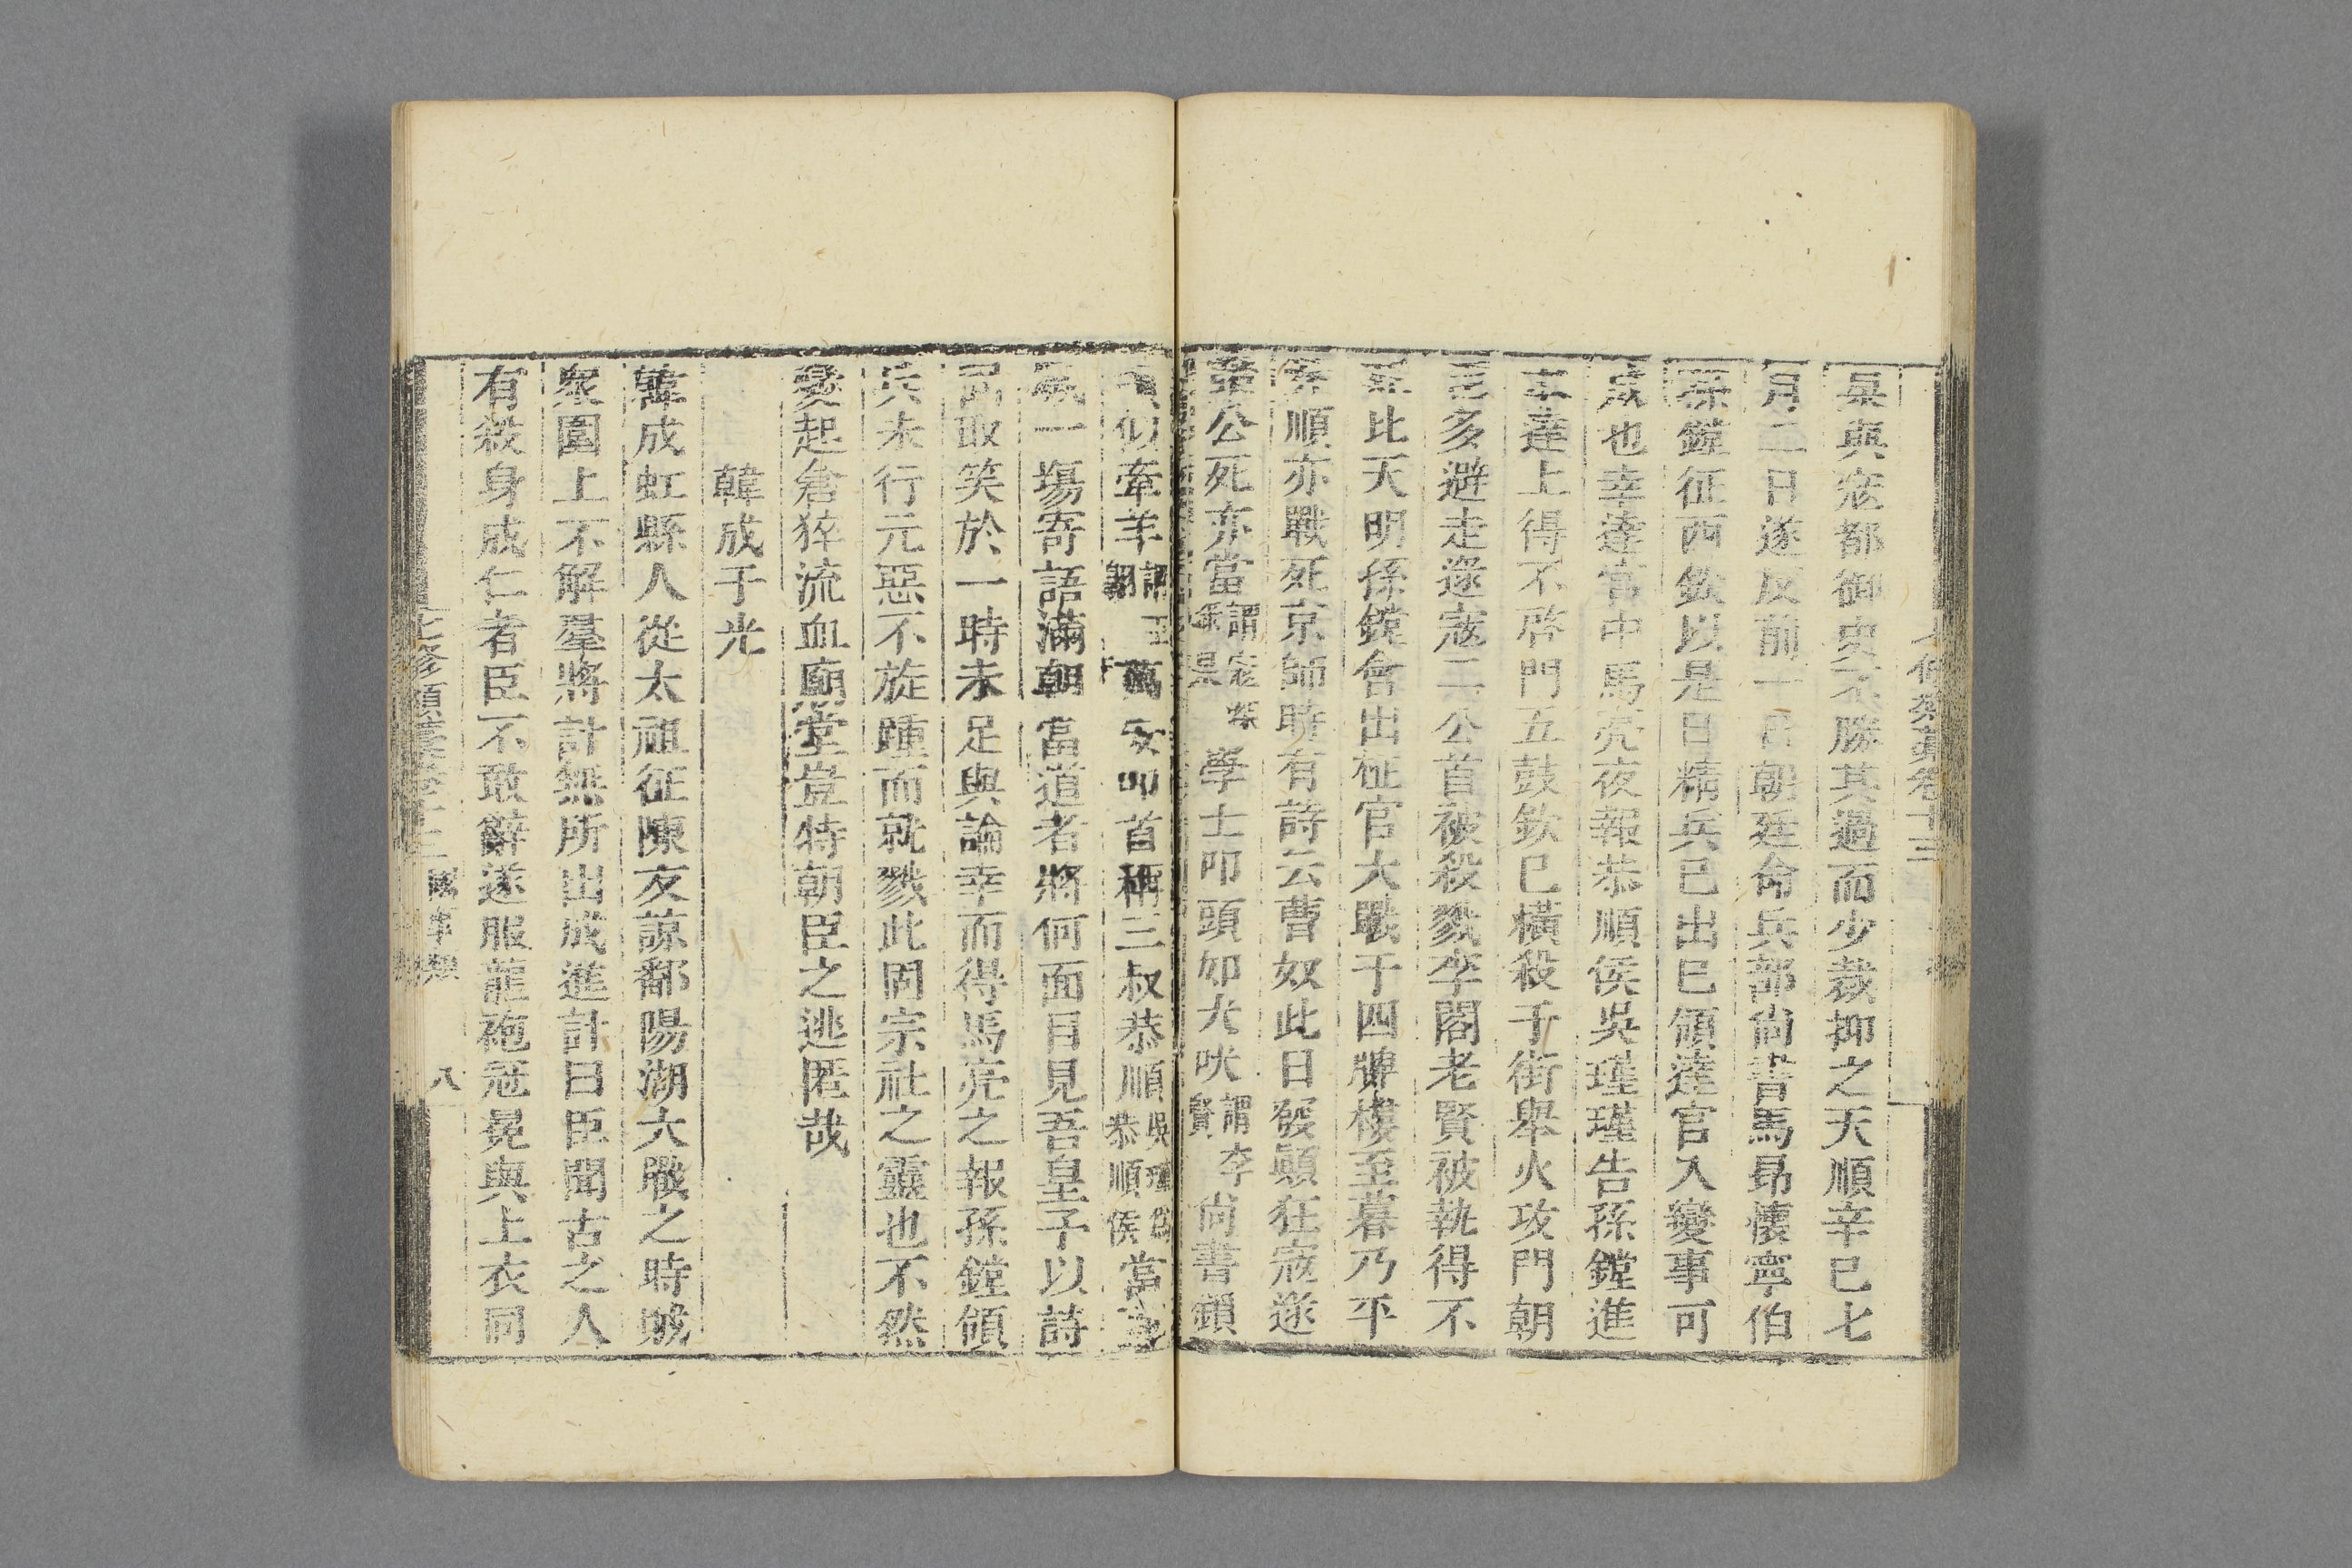 吴與寇都御史不勝其過而少裁抑之天順辛巳七
月二日遂反前一日朝廷命兵部尚書馬昂懷寧伯
孫鏜征西欽以是日精兵已出已領達官入變事可
成也幸達官中馬亮夜報恭順侯吳瑾瑾告孫鏜進
本達上得不啓門五鼓欽已橫殺于街舉火攻門朝
官多避走逐寇二公首被殺戮李閣老賢被執得不
死比天明孫鏜會出征官大戰于四牌樓至暮乃平
恭順亦戰死京師時有詩云曹奴此日發顛狂寇逐
諸公死亦當謂寇深吴學士叩頭如犬吠謂李賢尚書鎖
項似牽羊謂王翱萬
叩首稱三叔恭順吳瑾爲恭順侯當
一場寄語滿朝當道者將何面目見吾皇予以詩
固取笑於一時未足與論幸而得馬亮之報孫鏜領
兵未行元惡不旋踵而就戮此固宗社之靈也不然
變起倉猝流血廟堂豈特朝臣之逃匿哉
韓成于光
韓成虹縣人從太祖征陳友諒鄱陽湖大戰之時賊
衆圍上不解羣將計無所出成進計曰臣聞古之人
有殺身成仁者臣不敢辭遂服龍袍冠冕與上衣同
七修類藁卷十三 國事類 八